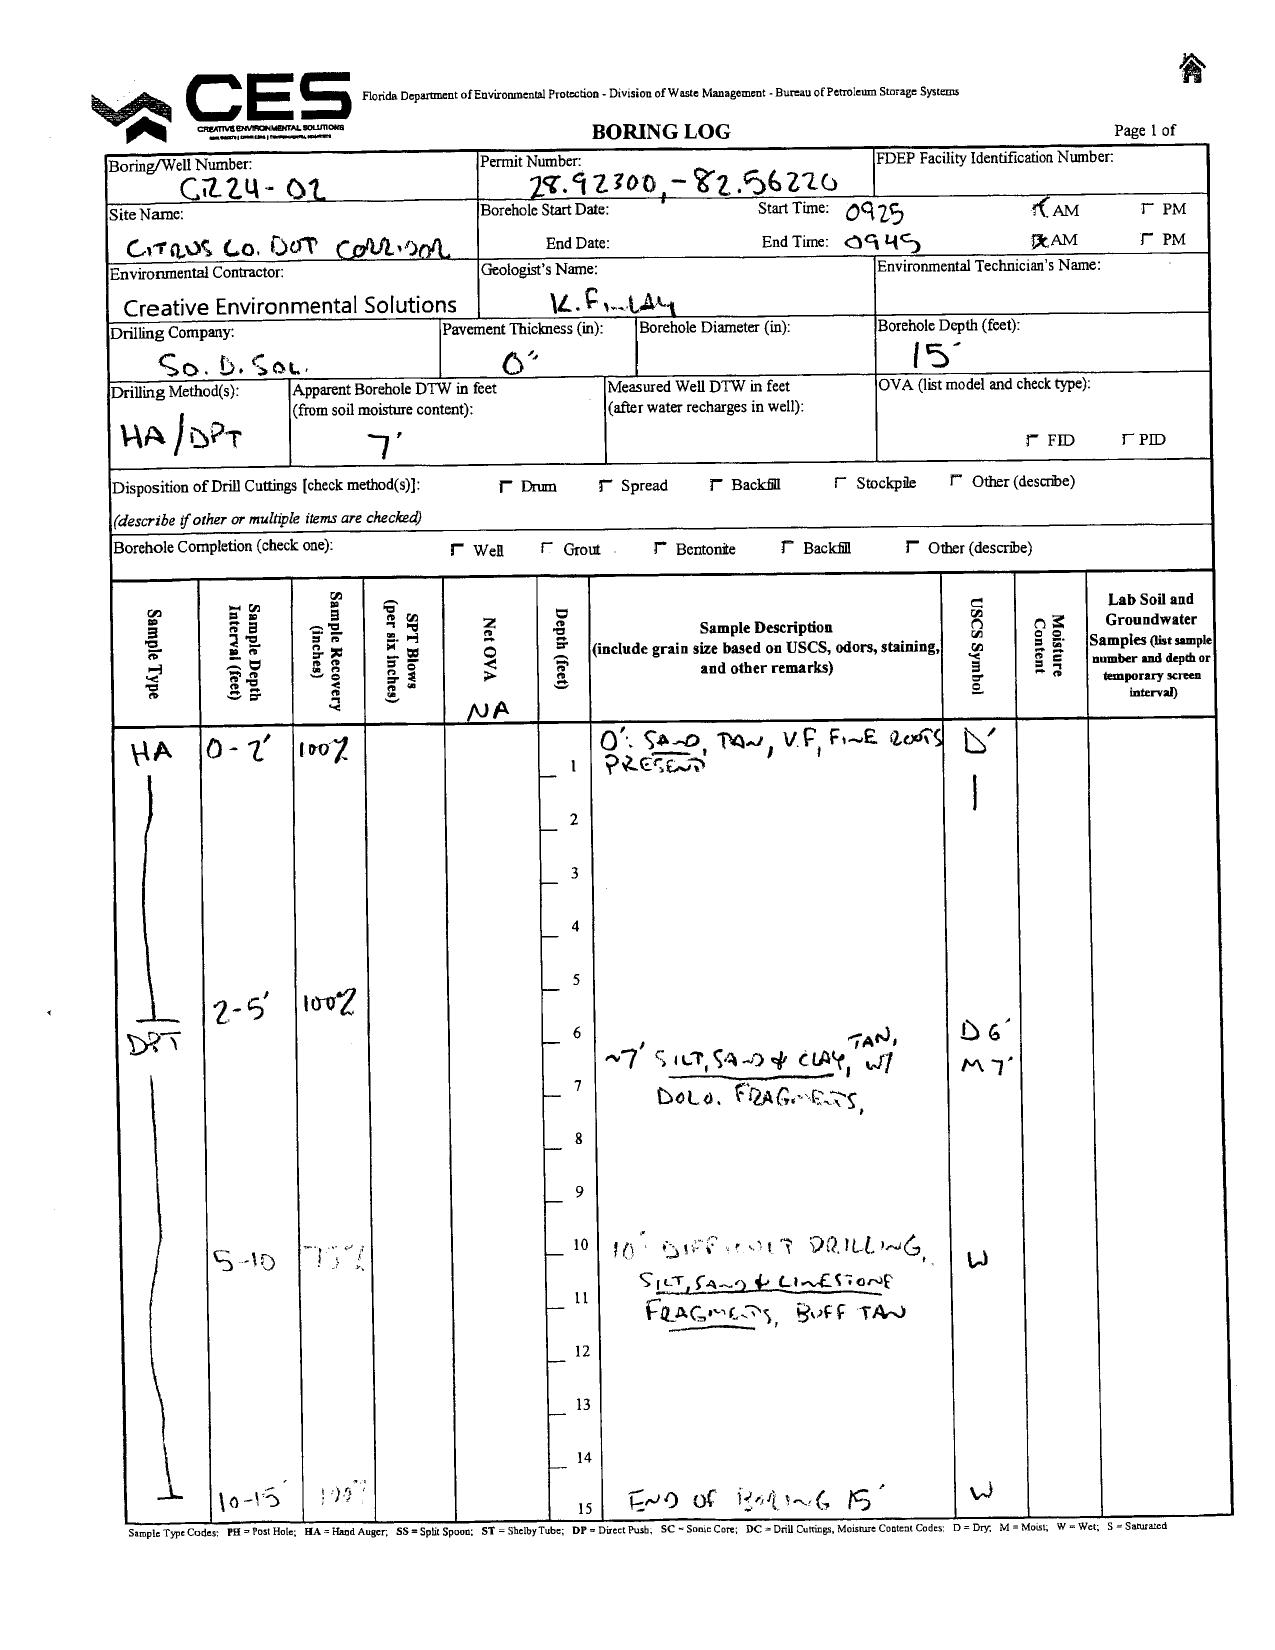 CES
CREATIVE ENVIRONMENTAL SOLUTIONS
Florida Department of Environmental Protection - Division of Waste Management - Bureau of Petroleum Storage Systems
BORING LOG
Page 1 of
Boring/Well Number:
Permit Number:
FDEP Facility Identification Number:
28.92300, -82.56220
Site Name:
Borehole Start Date:
Start Time: 0925
AM
PM
CITRUS CO. DOT CORRIDOR
End Date:
End Time: 0945
AM
PM
Environmental Contractor:
Geologist's Name:
Environmental Technician's Name:
Creative Environmental Solutions
K. FINLAY
Drilling Company:
Pavement Thickness (in):
Borehole Diameter (in):
Borehole Depth (feet):
So. D. SOL.
0"
15'
Drilling Method(s):
Apparent Borehole DTW in feet
(from soil moisture content):
Measured Well DTW in feet
(after water recharges in well):
OVA (list model and check type):
HA/DPT
7'
FID
PID
Disposition of Drill Cuttings [check method(s)]:
Drum
Spread
Backfill
Stockpile
Other (describe)
(describe if other or multiple items are checked)
Borehole Completion (check one):
Well
Grout
Bentonite
Backfill
Other (describe)
Sample Type
Sample Depth
Interval (feet)
Sample Recovery
(inches)
SPT Blows
(per six inches)
Net OVA
NA
Depth (feet)
Sample Description
(include grain size based on USCS, odors, staining,
and other remarks)
USCS Symbol
Moisture
Content
Lab Soil and
Groundwater
Samples (list sample
number and depth or
temporary screen
interval)
HA
0-2'
100%
0': SAND, TAN, V.F, FINE ROOTS
D'
1
PRESENT
2
3
4
5
2-5'
100%
DPT
6
D 6'
TAN,
~7' SILT, SAND & CLAY, W/
M 7'
7
DOLO. FRAGMENTS,
8
9
5-10
75%
10
10' DIFFICULT DRILLING,
W
SILT, SAND & LIMESTONE
11
FRAGMENTS, BUFF TAN
12
13
14
10-15'
100%
15
END OF BORING 15'
W
Sample Type Codes: PH = Post Hole; HA = Hand Auger; SS = Split Spoon; ST = Shelby Tube; DP = Direct Push; SC = Sonic Core; DC = Drill Cuttings, Moisture Content Codes: D = Dry; M = Moist; W = Wet; S = Saturated